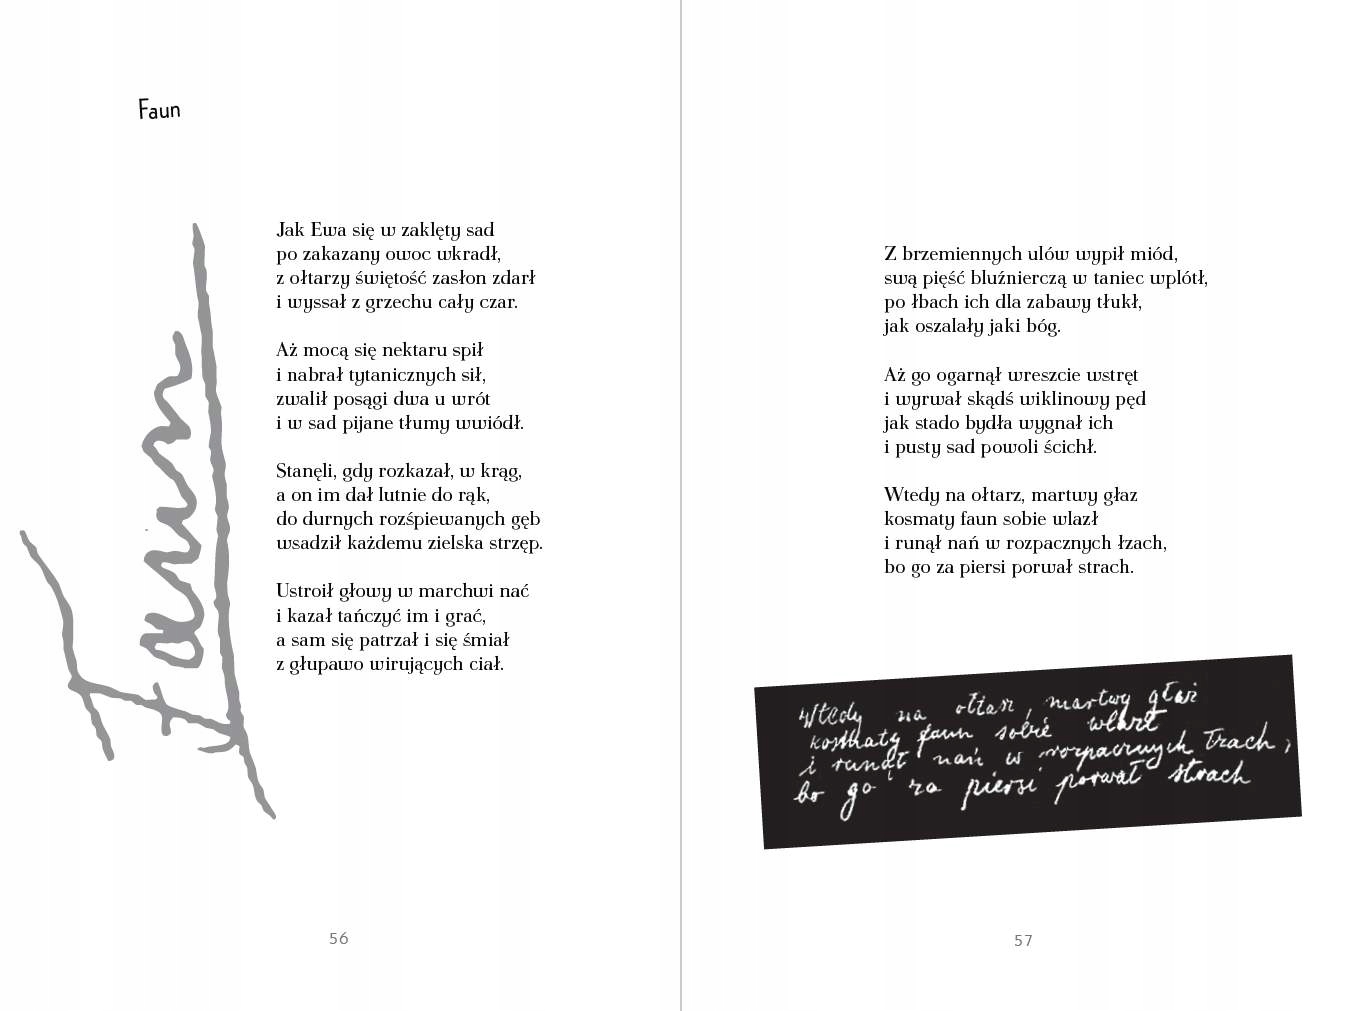 Faun
Faun
Jak Ewa się w zaklęty sad
po zakazany owoc wkradł,
z ołtarzy świętość zasłon zdarł
i wyssał z grzechu cały czar.
Aż mocą się nektaru spił
i nabrał tytanicznych sił,
zwalił posągi dwa u wrót
i w sad pijane tłumy wwiódł.
Stanęli, gdy rozkazał, w krąg,
a on im dał lutnie do rąk,
do durnych rozśpiewanych gęb
wsadził każdemu zielska strzęp.
Ustroił głowy w marchwi nać
i kazał tańczyć im i grać,
a sam się patrzał i się śmiał
z głupawo wirujących ciał.
56
Z brzemiennych ulów wypił miód,
swą pięść bluźnierczą w taniec wplótł,
po łbach ich dla zabawy tłukł,
jak oszalały jaki bóg.
Aż go ogarnął wreszcie wstręt
i wyrwał skądś wiklinowy pęd
jak stado bydła wygnał ich
i pusty sad powoli ścichł.
Wtedy na ołtarz, martwy głaz
kosmaty faun sobie wlazł
i runął nań w rozpacznych łzach,
bo go za piersi porwał strach.
Wtedy na ołtarz, martwy głaz
kosmaty faun sobie wlazł
i runął nań w rozpacznych łzach,
bo go za piersi porwał strach
57